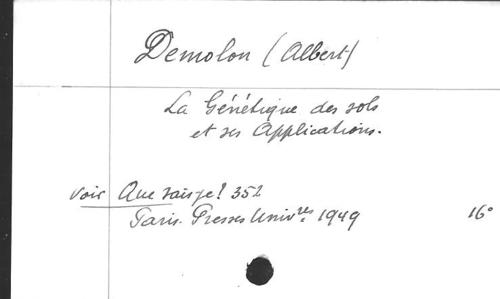 Demolon (Albert)
La Génétique des sols
et ses Applications.
voir Que sais-je? 352
Paris. Presses Univ.res 1949 16°